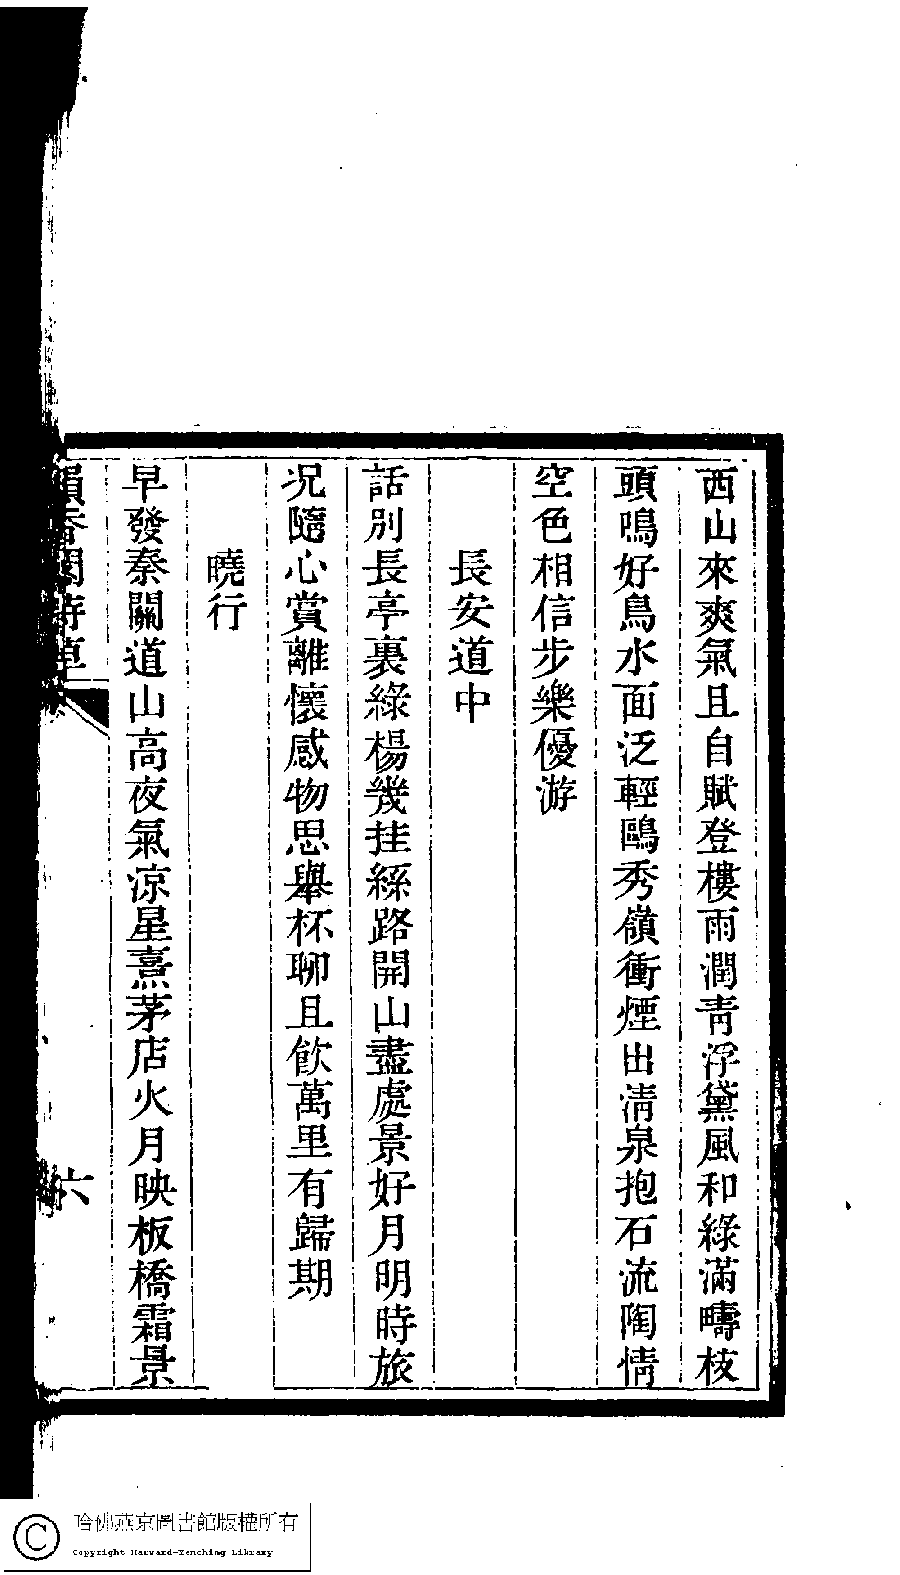 西山來爽氣且自賦登樓雨潤青浮黛風和綠滿疇枝
頭鳴好鳥水面泛輕鷗秀嶺衝煙出清泉抱石流陶情
空色相信步樂優游
長安道中
話別長亭裏綠楊幾挂絲路開山盡處景好月明時旅
况隨心賞離懷感物思舉杯聊且飮萬里有歸期
曉行
早發秦關道山高夜氣涼星熹茅店火月映板橋霜景
香閣詩草
六
哈佛燕京圖書館版權所有
Copyright Harvard-Yenching Library